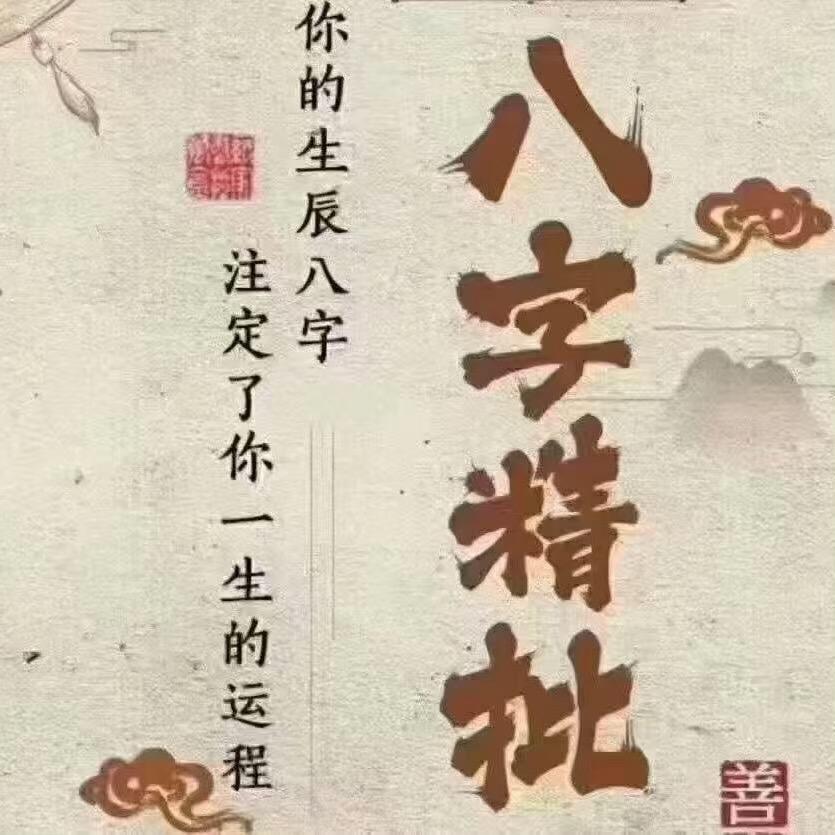 八字精批
你的生辰八字
注定了你一生的运程
善